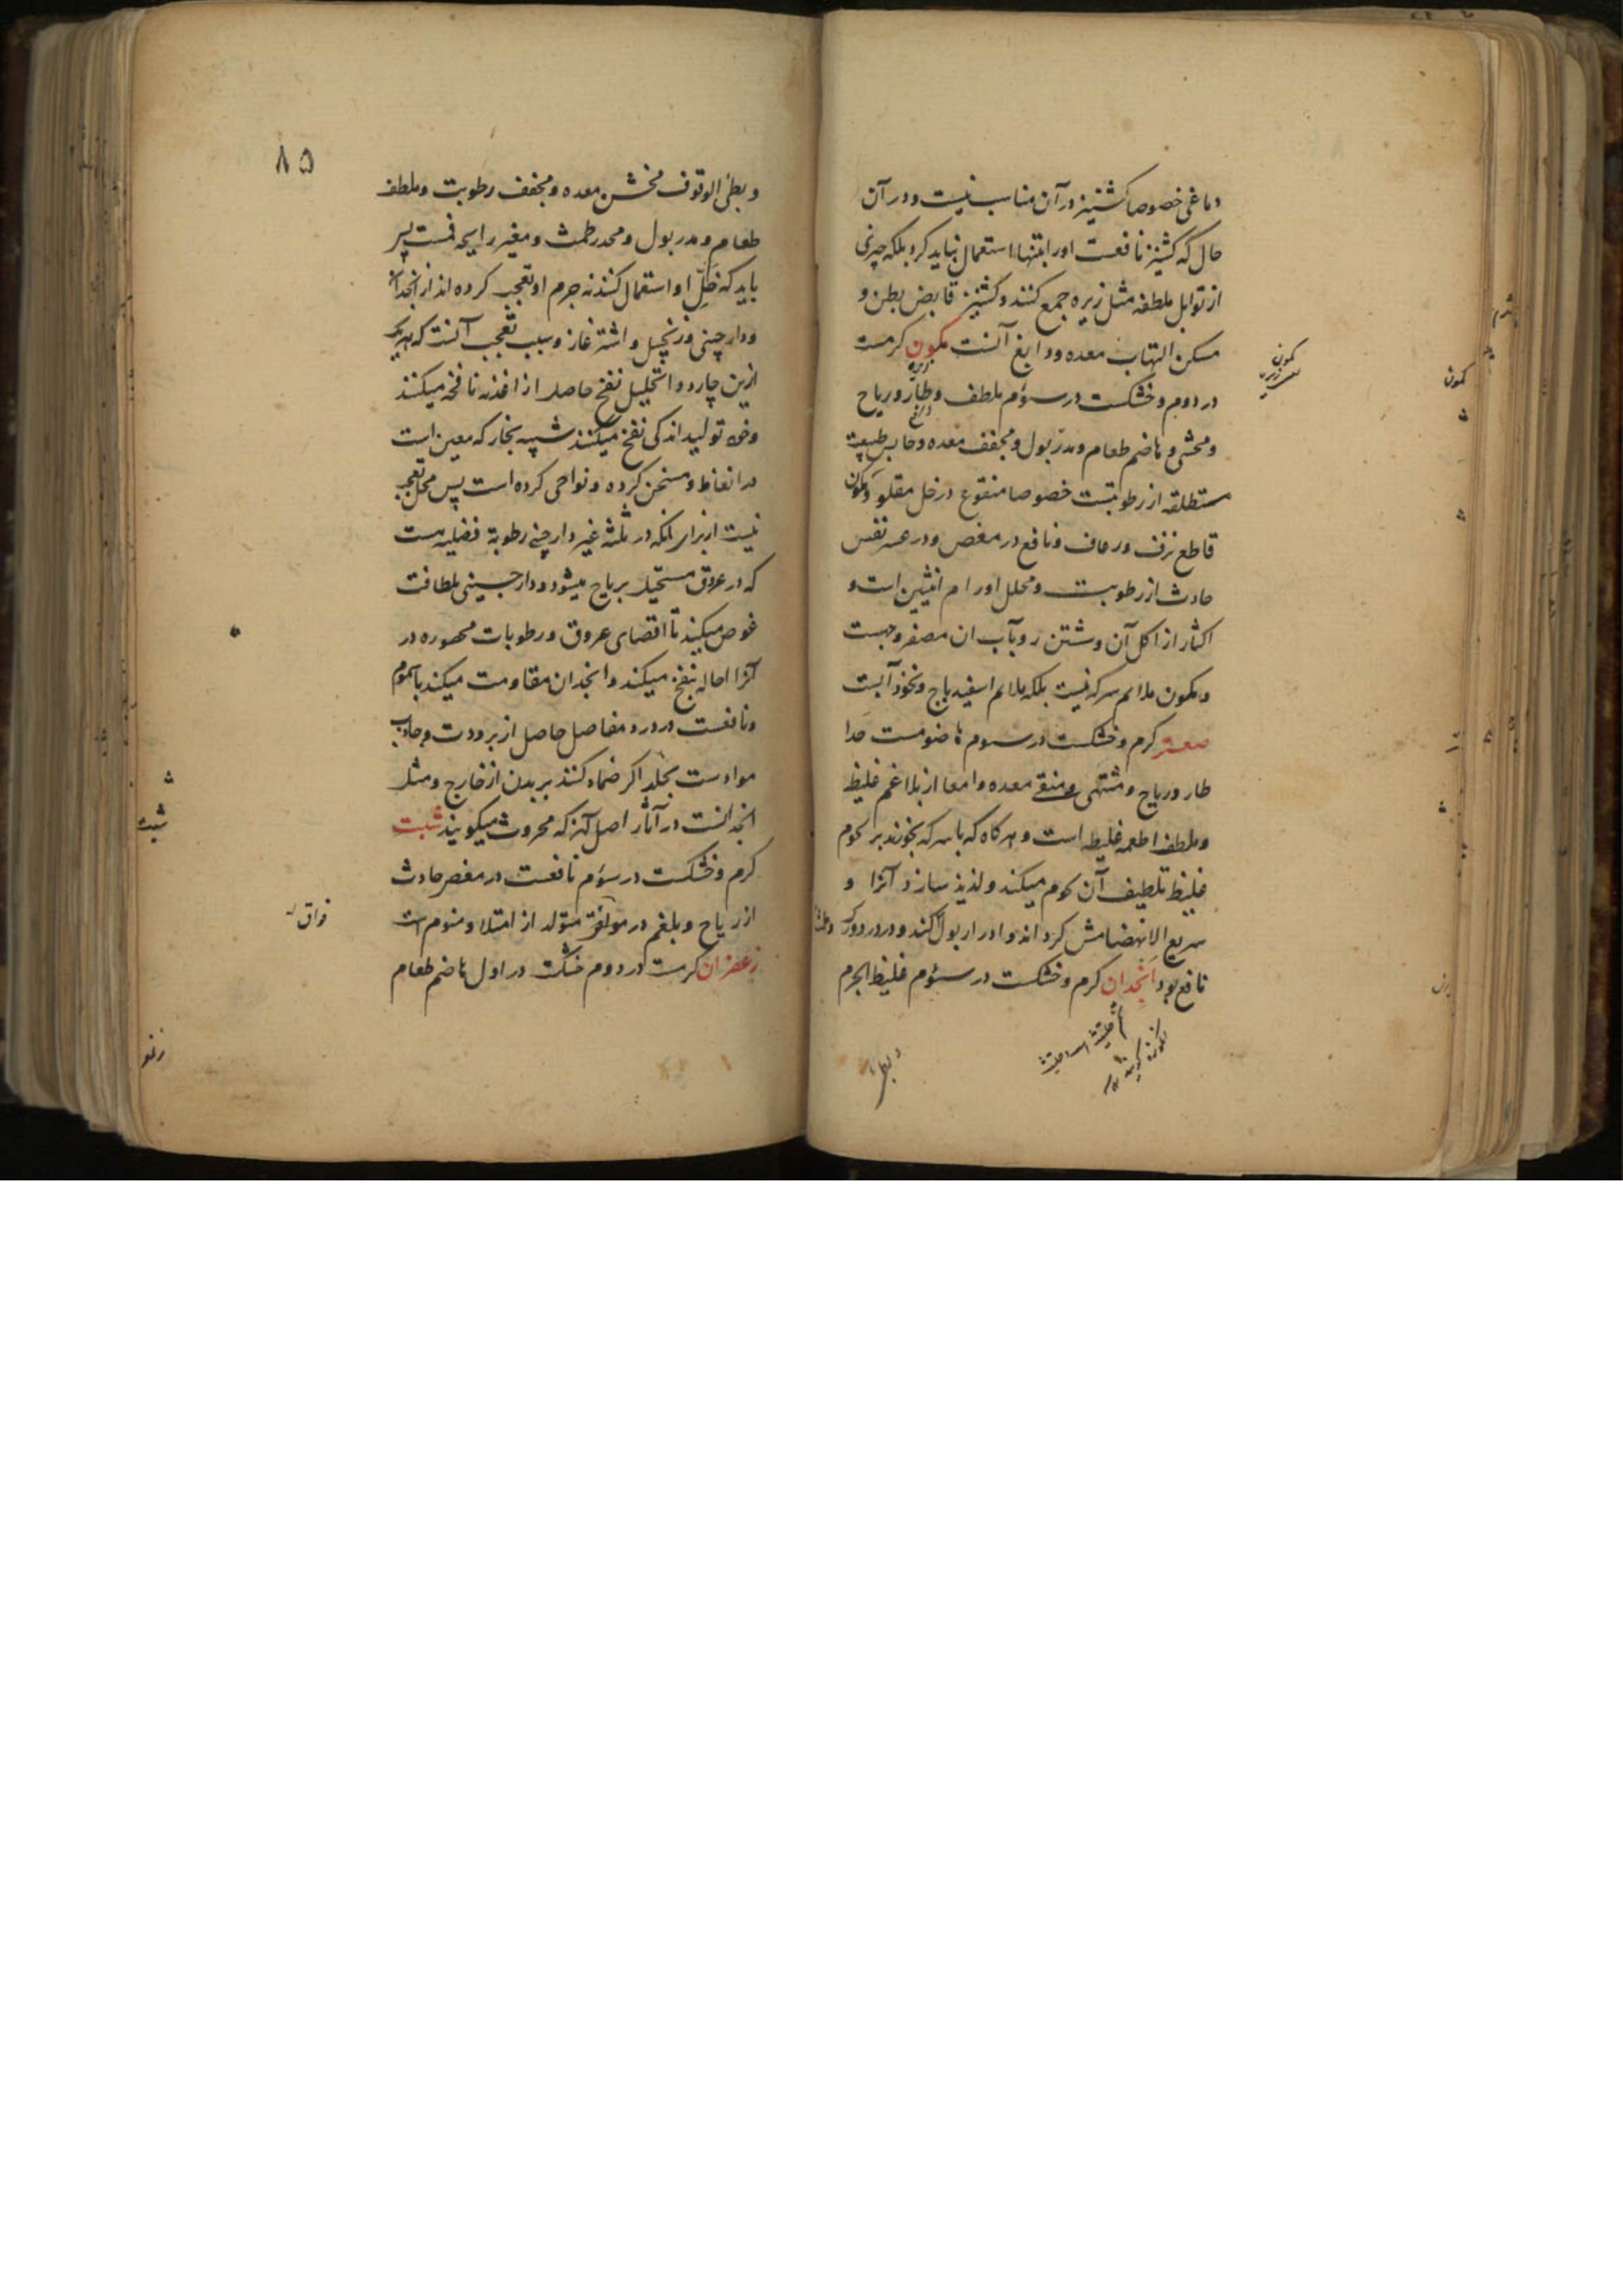 دماغی خصوصا کشنیز در آن مناسب نیست و در آن
حال که کشنیز نافعست او را بتنها استعمال نباید کرد بلکه چیزی
از توابل ملطفه مثل زیره جمع کنند و کشنیز قابض بطن و
مسکن التهاب معده و دابغ آنست کمون کرمست
در دوم و خشکست در سوم ملطف و طارد ریاح
و محشی و هاضم طعام و مدر بول و مجفف معده و حابس طبیعت
مستطلقه از رطوبتست خصوصا منقوع در خل مقلو و کمون
قاطع نزف و رعاف و نافع در مغص و در عسر نفس
حادث از رطوبت و محلل اورام انثیین است و
اکثار از اکل آن و شستن رو بآب ان مصفر وجهست
و کمون ملائم سرکه نیست بلکه ملائم اسفیدباج و نخودآبست
صعتر کرم و خشکست در سوم هاضومست جدا
طارد ریاح و مشتهی و منقی معده و امعا از بلاغم غلیظ
و ملطف اطعمه غلیظه است و هرکاه که با سرکه بخورند بر لحوم
غلیظ تلطیف آن لحوم میکند و لذیذ سازد آنرا و
سریع الانهضامش کرداند و ادرار بول کند و در درد ورک
نافع بود انجدان کرم و خشکست در سوم غلیظ الجرم
کمون
کمون
۸۵
و بطی الوقوف مخشن معده و مجفف رطوبت و ملطف
طعام و مدر بول و محدر طمث و مغیر رایحه فمست پس
باید که خل او استعمال کنند نه جرم او تعجب کرده اند از انجدان
و دارچینی و زنجبیل و اشترغاز و سبب تعجب آنست که هر یک
ازین چار دوا تحلیل نفخ حاصل از اغذیه نافخه میکنند
وخود تولید اندکی نفخ میکنند شبیه بخار که معین است
در انعاظ و مسخن کرده و نواحی کرده است پس محل تعجب
نیست از برای انکه در ثلثه غیر دارچینی رطوبة فضلیه هست
که در عروق مستحیل بریاح میشود و دارچینی بلطافت
غوص میکند تا اقصای عروق و رطوبات محصوره در
آنرا احاله بنفخ میکند و انجدان مقاومت میکند با سموم
و نافعست در درد مفاصل حاصل از برودت و جاذب
موادست بجلد اکر ضماد کنند بر بدن از خارج و مثل
انجدانست در آثار اصل آن که محروث میکویند شبت
کرم و خشکست در سوم نافعست در مغص حادث
از ریاح و بلغم در فواق متولد از امتلا و منوم است
زعفران کرمست در دوم خشکست در اول هاضم طعام
شبت
فواق